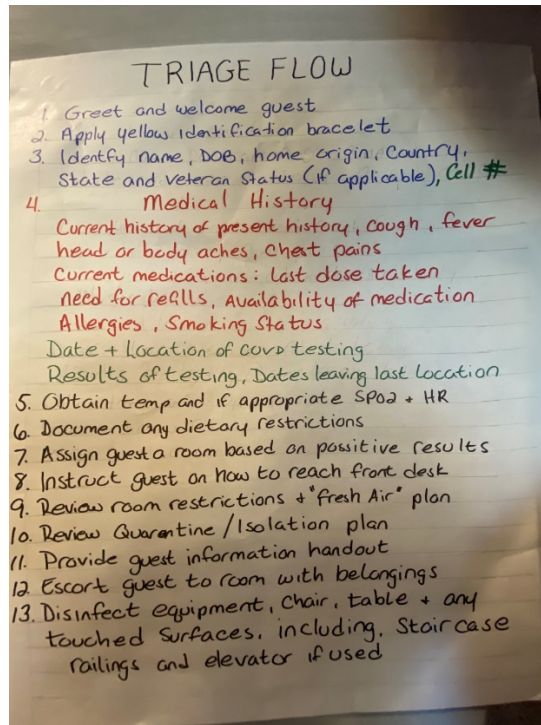 TRIAGE FLOW
1. Greet and welcome guest
2. Apply yellow Identification bracelet
3. Identfy name, DOB, home origin, Country,
State and veteran Status (if applicable), Cell #
4. Medical History
Current history of present history, cough, fever
head or body aches, Chest pains
Current medications: last dose taken
need for refills, Availability of medication
Allergies, Smoking Status
Date + Location of COVD testing
Results of testing, Dates leaving last location
5. Obtain temp and if appropriate SPO2 + HR
6. Document any dietary restrictions
7. Assign guest a room based on possitive results
8. Instruct guest on how to reach front desk
9. Review room restrictions + "fresh Air" plan
10. Review Quarentine / Isolation plan
11. Provide guest information handout
12 Escort guest to room with belongings
13. Disinfect equipment, Chair, table + any
touched surfaces, including, Stair case
railings and elevator if used